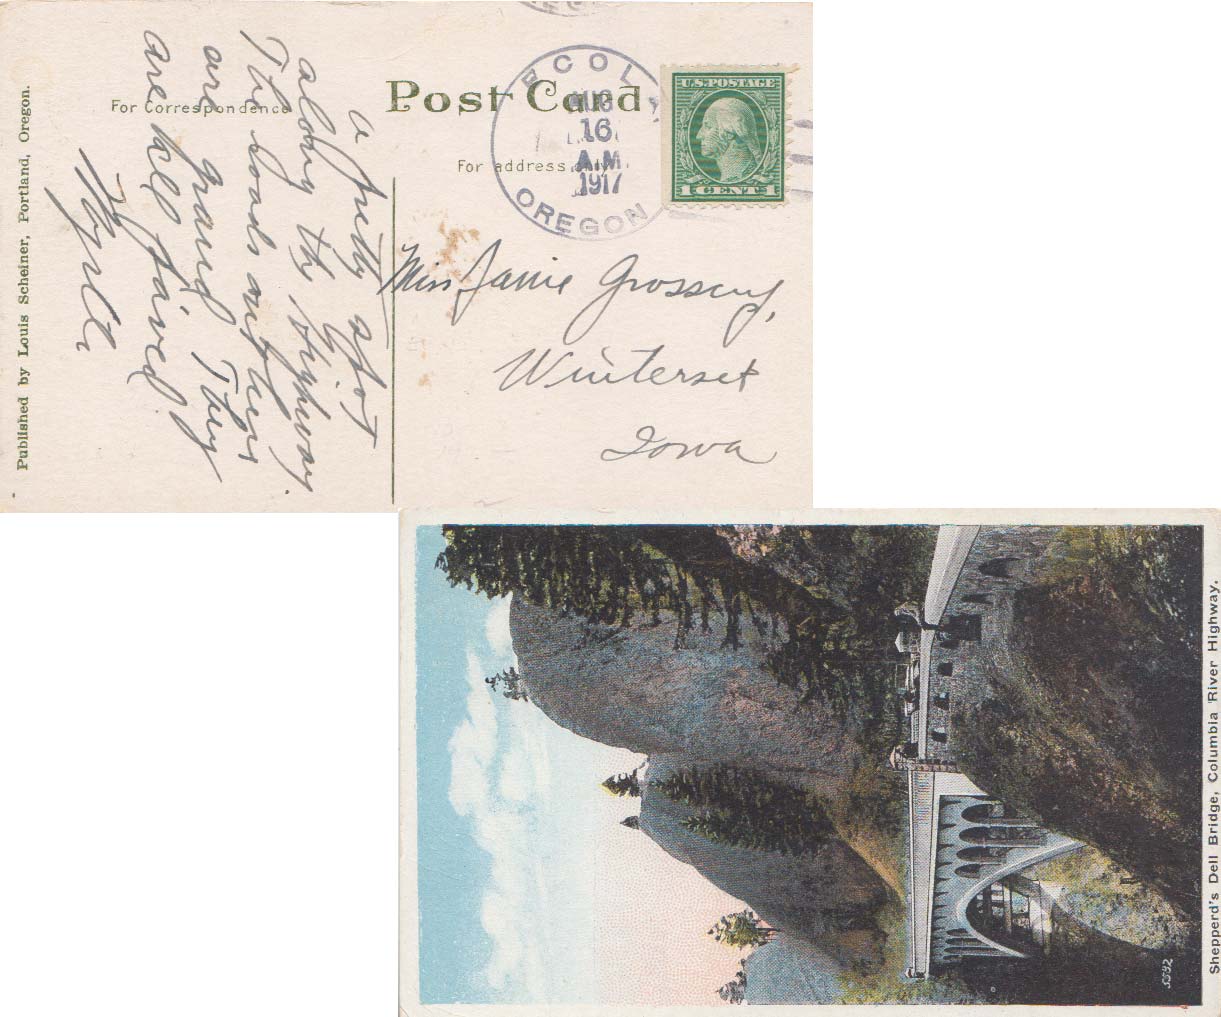 Post Card
For Correspondence
For address only
ECOLA
AUG
16
A.M.
1917
OREGON
U.S. POSTAGE
1 CENT 1
a pretty spot
along the highway.
The roads out here
are grand They
are all paved
Miss Janie Grossury,
Winterset
Iowa
Published by Louis Scheiner, Portland, Oregon.
Shepperd's Dell Bridge, Columbia River Highway.
5592